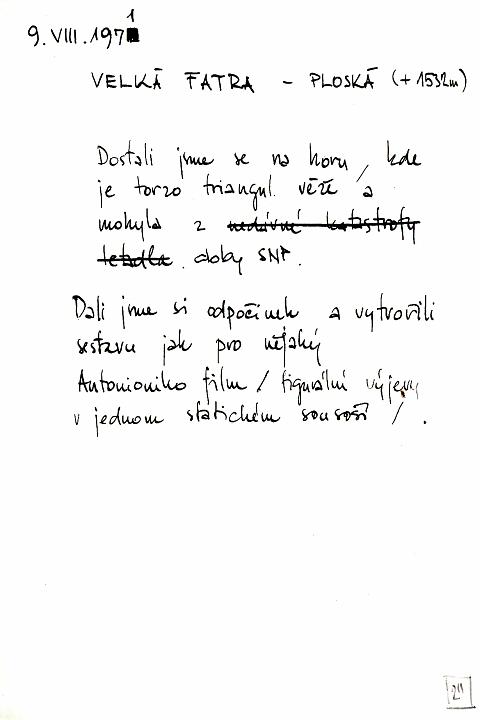 9.VIII.1971
VELKÁ FATRA – PLOSKÁ (+1532m)
Dostali jsme se na horu, kde
je torzo triangul. věže a
mohyla z nedávné katastrofy
letadla. doby SNP.
Dali jsme si odpočinek a vytvořili
sestavu jak pro nějaký
Antonioniho film / figurální výjevy
v jednom statickém sousoší / .